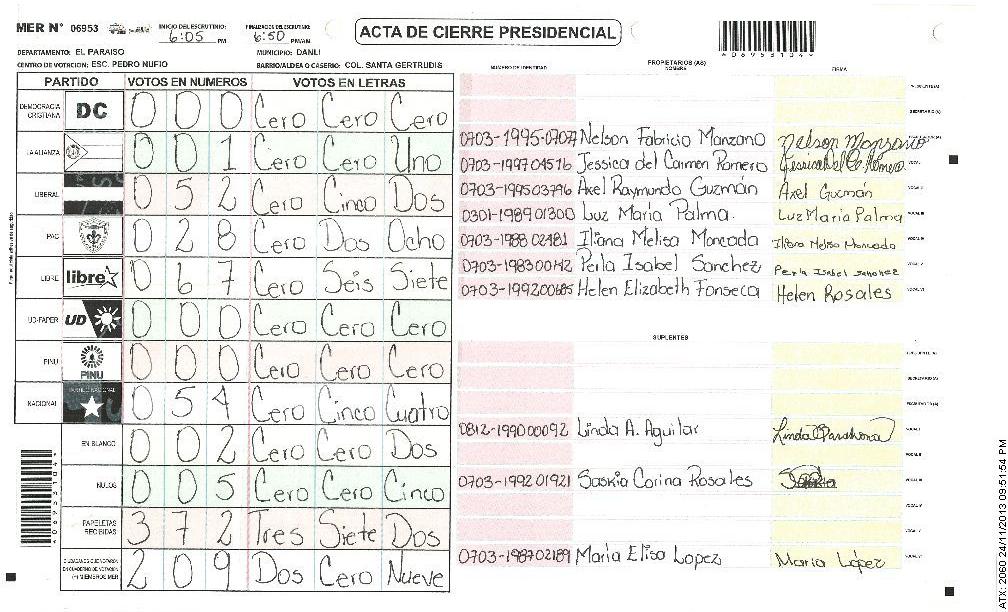 MER N° 06953
INICIO DEL ESCRUTINIO: 6:05 PM
FINALIZACION DEL ESCRUTINIO: 6:50 PM/AM
ACTA DE CIERRE PRESIDENCIAL
DEPARTAMENTO: EL PARAISO
MUNICIPIO: DANLI
CENTRO DE VOTACION: ESC. PEDRO NUFIO
BARRIO/ALDEA O CASERIO: COL. SANTA GERTRUDIS
PARTIDO VOTOS EN NUMEROS VOTOS EN LETRAS
DEMOCRACIA CRISTIANA DC 0 0 0 Cero Cero Cero
LA ALIANZA 0 0 1 Cero Cero Uno
LIBERAL 0 5 2 Cero Cinco Dos
PAC 0 2 8 Cero Dos Ocho
LIBRE libre 0 6 7 Cero Seis Siete
UD-FAPER UD 0 0 0 Cero Cero Cero
PINU PINU 0 0 0 Cero Cero Cero
NACIONAL 0 5 4 Cero Cinco Cuatro
EN BLANCO 0 0 2 Cero Cero Dos
NULOS 0 0 5 Cero Cero Cinco
PAPELETAS RECIBIDAS 3 7 2 Tres Siete Dos
CIUDADANOS QUE VOTARON EN CUADERNO DE VOTACION (+) MIEMBROS MER 2 0 9 Dos Cero Nueve
NUMERO DE IDENTIDAD
PROPIETARIOS (AS)
NOMBRE
FIRMA
Nelson Fabricio Manzano
0703-1997 04516 Jessica del Carmen Romero
0703-1995 03796 Axel Raymundo Guzmán Axel Guzmán
0301-1989 01300 Luz Maria Palma Luz Maria Palma
0703-1988 02481 Iliana Melisa Moncada Iliana Melisa Moncada
0703-1983 00142 Perla Isabel Sanchez Perla Isabel Sanchez
0703-1992 00685 Helen Elizabeth Fonseca Helen Rosales
SUPLENTES
0812-1990 00092 Linda A. Aguilar Linda
0703-1992 01921 Saskia Corina Rosales
0703-1987 02189 Maria Elisa Lopez Maria López
ATX: 2060 24/11/2013 09:51:54 PM